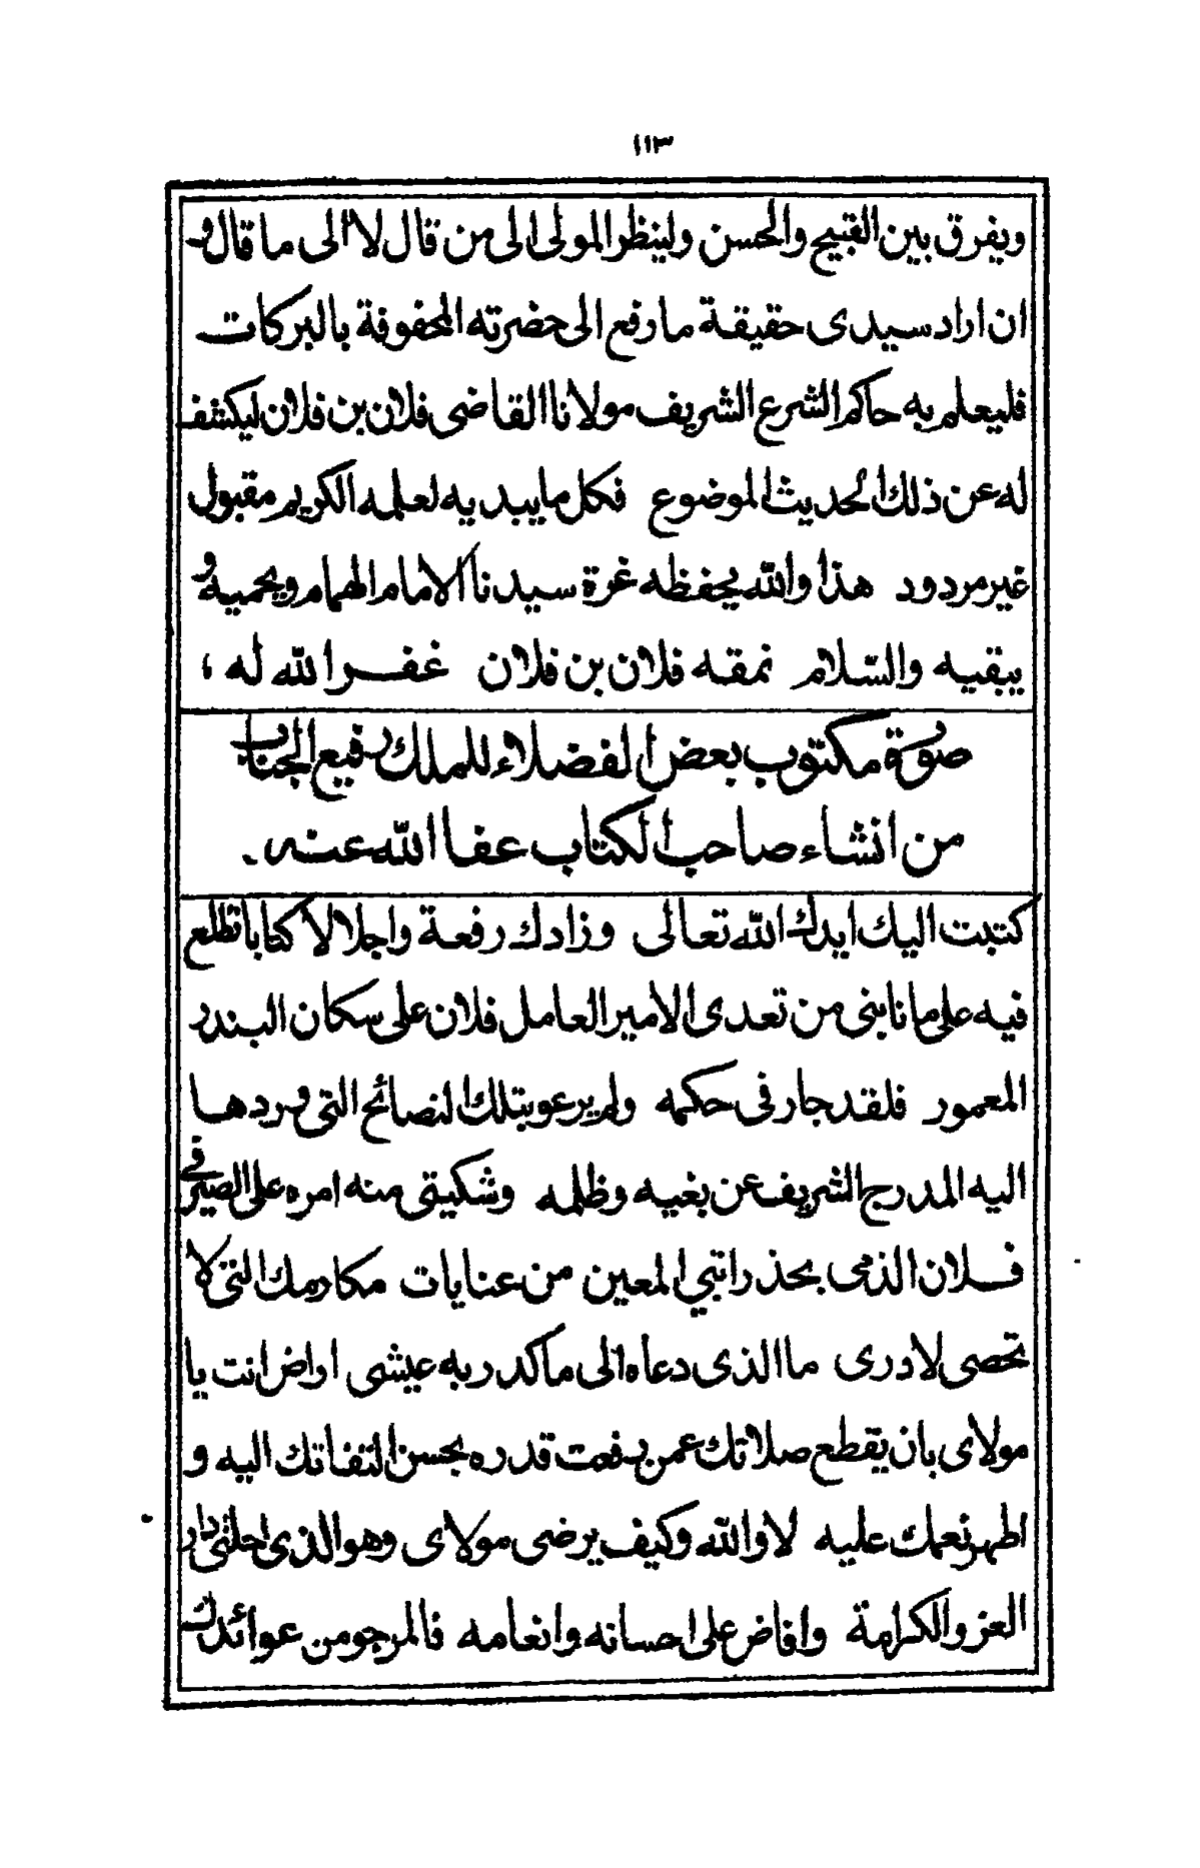 ١١٣
ويفرق بين القبيح والحسن ولينظر المولى الى من قال لا الى ما قال و
ان اراد سيدى حقيقة ما رفع الى حضرته المحفوفة بالبركات
فليعلم به حاكم الشرع الشريف مولانا القاضى فلان بن فلان ليكشف
له عن ذلك الحديث الموضوع فكل ما يبديه لعلمه الكريم مقبول
غير مردود هذا والله يحفظه غرة سيدنا الامام الهمام ويحميه و
يبقيه والسّلام نمقه فلان بن فلان غفر الله له ؛
صورة مكتوب بعض الفضلاء للملك رفيع الجناب
من انشاء صاحب الكتاب عفا الله عنه
كتبت اليك ايدك الله تعالى وزادك رفعة واجلالا كتابا تطلع
فيه على ما نابنى من تعدى الامير العامل فلان على سكان البندر
المعمور فلقد جار فى حكمه ولم يرعو بتلك النصائح التى وردها
اليه المدرج الشريف عن بغيه وظلمه وشكيتى منه امره على الصيرفى
فلان الذمى بحذ راتبي المعين من عنايات مكارمك التى لا
تحصى لا درى ما الذى دعاه الى ما كدر به عيشى اراض انت يا
مولاى بان يقطع صلاتك عمن رفعت قدره بحسن التفاتك اليه و
اظهر نعمك عليه لا والله وكيف يرضى مولاى وهو الذى احلنى دار
العز والكرامة وافاض على احسانه وانعامه فالمرجو من عوائدك